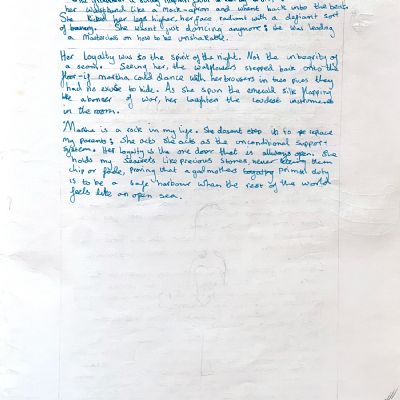 her waistband like a make-apron and went back into the beat.
She kicked her legs higher, her face radiant with a defiant sort
of bravery. She wasnt just dancing anymore; she was leading
a masterclass on how to be unshakable.
Her loyalty was to the spirit of the night. Not the integrity of
a seam. Seeing her, the wallflowers stepped back onto the
floor-if martha could dance with her trousers in two pives they
had no excuse to hide. As she spun the emerald silk flapping
like a banner of war, her laughter the loudest instrument
in the room.
Martha is a rock in my life. She doesnt stop up to replace
my parents; She acts she acts as the unconditional support
system. Her loyalty is the one door that is allways open. She
holds my secrets like precious stones, never them
chip or fade, proving that a godmothers loyalty primal duty
is to be a safe harbour when the rest of the world
feels like an open sea.